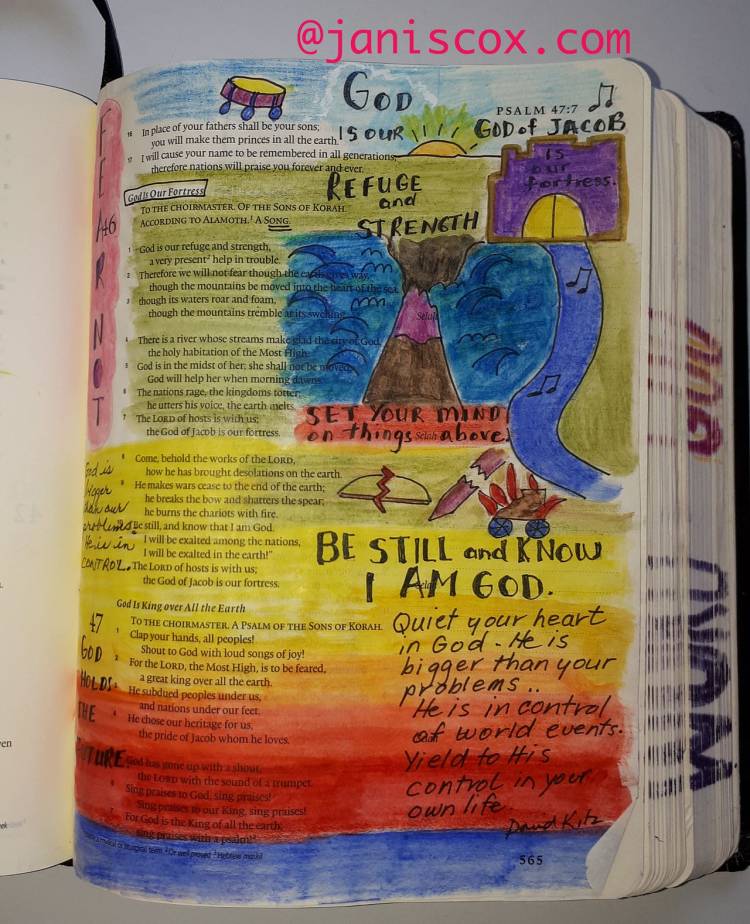 @janiscox.com
GOD
IS OUR
PSALM 47:7
GOD of JACOB
is
our
fortress.
REFUGE
and
STRENGTH
FEAR NOT
16 In place of your fathers shall be your sons;
you will make them princes in all the earth.
17 I will cause your name to be remembered in all generations;
therefore nations will praise you forever and ever.
God Is Our Fortress
46
TO THE CHOIRMASTER. OF THE SONS OF KORAH.
ACCORDING TO ALAMOTH.1 A SONG.
1 God is our refuge and strength,
a very present2 help in trouble.
2 Therefore we will not fear though the earth gives way,
though the mountains be moved into the heart of the sea,
3 though its waters roar and foam,
though the mountains tremble at its swelling. Selah
4 There is a river whose streams make glad the city of God,
the holy habitation of the Most High.
5 God is in the midst of her; she shall not be moved;
God will help her when morning dawns.
6 The nations rage, the kingdoms totter;
he utters his voice, the earth melts.
7 The LORD of hosts is with us;
the God of Jacob is our fortress. Selah
SET YOUR MIND
on things above.
8 Come, behold the works of the LORD,
how he has brought desolations on the earth.
9 He makes wars cease to the end of the earth;
he breaks the bow and shatters the spear;
he burns the chariots with fire.
10 "Be still, and know that I am God.
I will be exalted among the nations,
I will be exalted in the earth!"
11 The LORD of hosts is with us;
the God of Jacob is our fortress. Selah
God is
bigger
than our
problems.
He is in
CONTROL.
BE STILL and KNOW
I AM GOD.
God Is King over All the Earth
47
TO THE CHOIRMASTER. A PSALM OF THE SONS OF KORAH.
1 Clap your hands, all peoples!
Shout to God with loud songs of joy!
2 For the LORD, the Most High, is to be feared,
a great king over all the earth.
3 He subdued peoples under us,
and nations under our feet.
4 He chose our heritage for us,
the pride of Jacob whom he loves.
5 God has gone up with a shout,
the LORD with the sound of a trumpet.
6 Sing praises to God, sing praises!
Sing praises to our King, sing praises!
7 For God is the King of all the earth;
sing praises with a psalm!
GOD
HOLDS
THE
FUTURE.
Quiet your heart
in God - He is
bigger than your
problems..
He is in control
of world events.
Yield to His
control in your
own life.
David Kitz
565